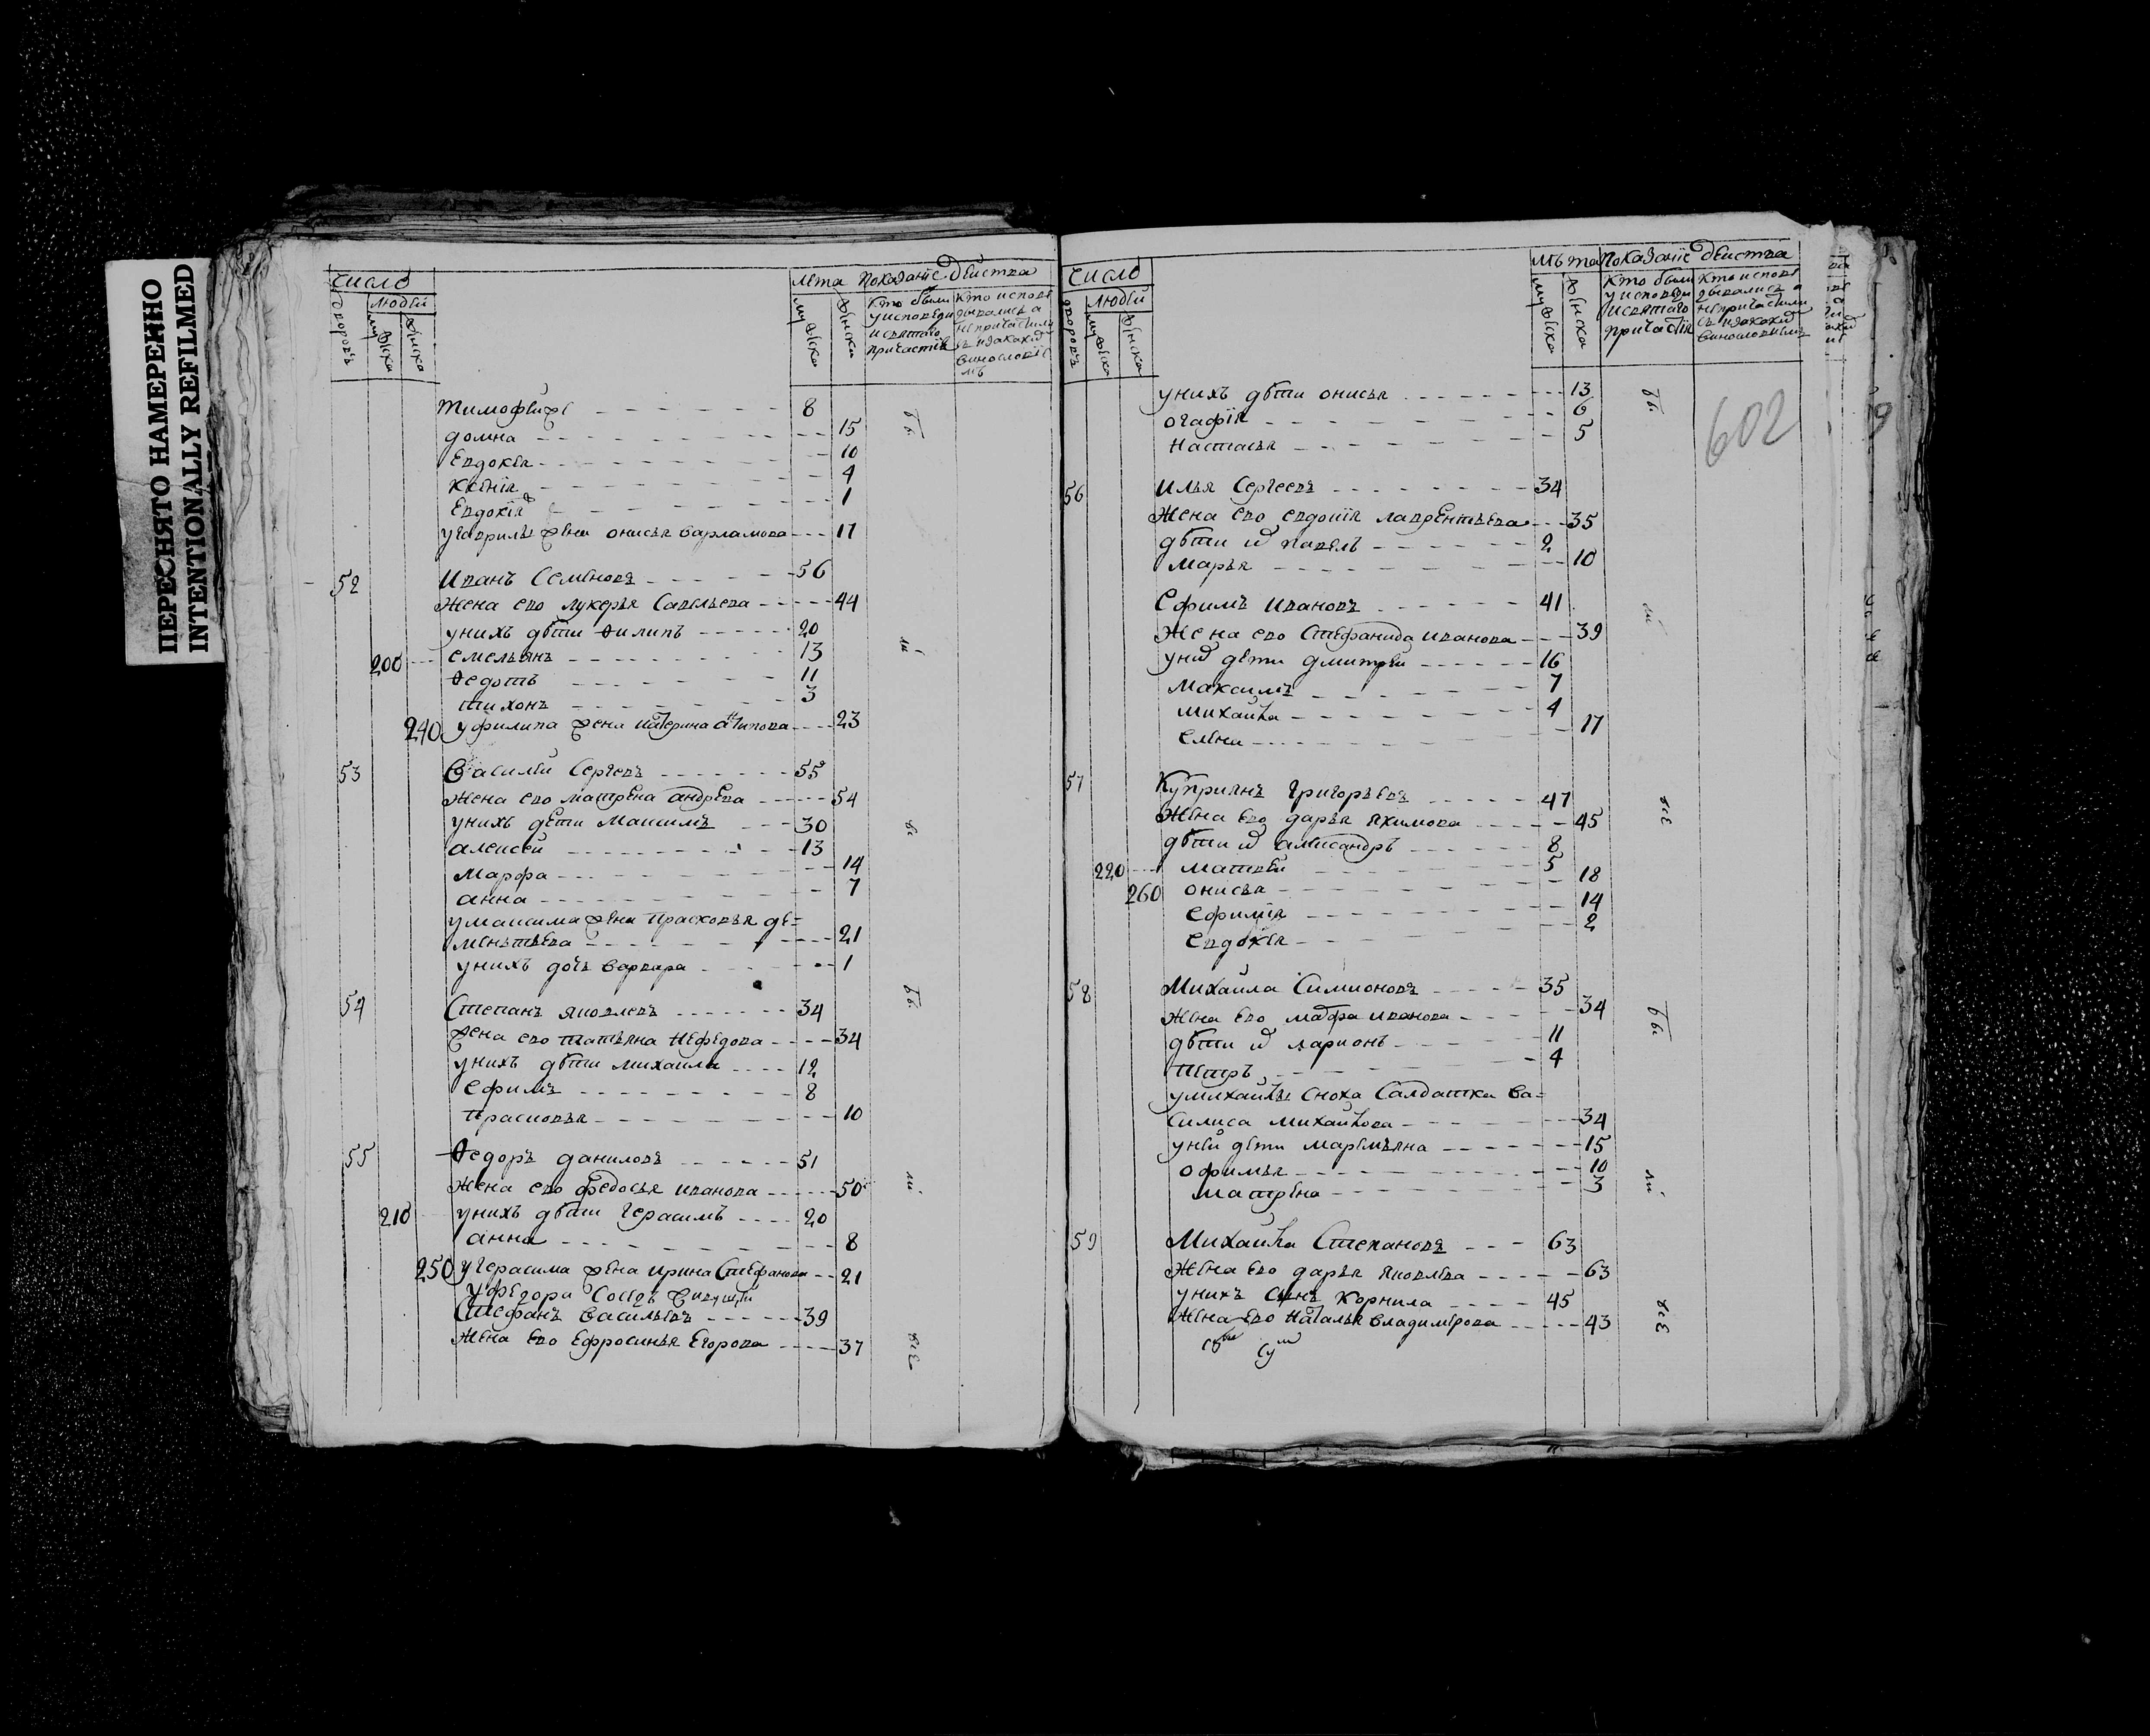 ПЕРЕСНЯТО НАМЕРЕННО
INTENTIONALLY REFILMED
число
лета показанїе действа
дворовъ
людей
мужеска
женска
мужеска
женска
кто были у исповеди и святаго причастїя
кто исповедывались а не причастились и за каким винословїемъ
Тимофей 8
домна 15
Евдокея 10
Ксенїя 4
Евдокїя 1
у гаврилы жена онисья варламова 17
52 Иванъ Семеновъ 56
жена ево лукерья Савельева 44
у нихъ дѣти Филипъ 20
200 емельянъ 13
Федотъ 11
тихонъ 3
240 у филипа жена катерина антипова 23
53 Василей Сергевъ 55
жена ево матрена андрева 54
у нихъ дети Максимъ 30
алексей 13
Марфа 14
анна 7
у максима жена Прасковья де=
ментьева 21
у нихъ дочь варвара 1
54 Степанъ яковлевъ 34
жена ево татьяна нефедова 34
у нихъ дѣти михаила 12
ефимъ 8
прасковья 10
55 Федоръ даниловъ 51
жена ево федосья иванова 50
210 у нихъ дѣти герасимъ 20
анна 8
250 у герасима жена ирина Стефанова 21
у федора соседъ
Стефанъ васильевъ 39
жена ево Ефросинья Егорова 37
число
лѣта показанїе действа
дворовъ
людей
мужеска
женска
мужеска
женска
кто были у исповеди и святаго причастїя
кто исповедывались а не причастились и за каким винословиемъ
602
у нихъ дѣти онисья 13
огафїя 6
настасья 5
56 илья Сергеевъ 34
жена ево евдокїя лаврентьева 35
дѣти их павелъ 2
марья 10
Ефимъ ивановъ 41
жена ево Стефанида иванова 39
у них дети дмитрей 16
максимъ 7
михаила 4
елена 17
57 Куприянъ григорьевъ 47
жена ево дарья якимова 45
дѣти их александръ 8
220 матвей 5
260 онисья 18
ефимїя 14
евдокея 2
58 Михаила Симионовъ 35
жена ево марфа иванова 34
дѣти их ларионъ 11
петръ 4
у михайлы сноха Салдатка ва=
силиса михайлова 34
у ней дети маремьяна 15
офимья 10
матрена 3
59 Михаила Степановъ 63
жена ево дарья яковлева 63
у нихъ сынъ корнила 45
жена ево наталья владимерова 43